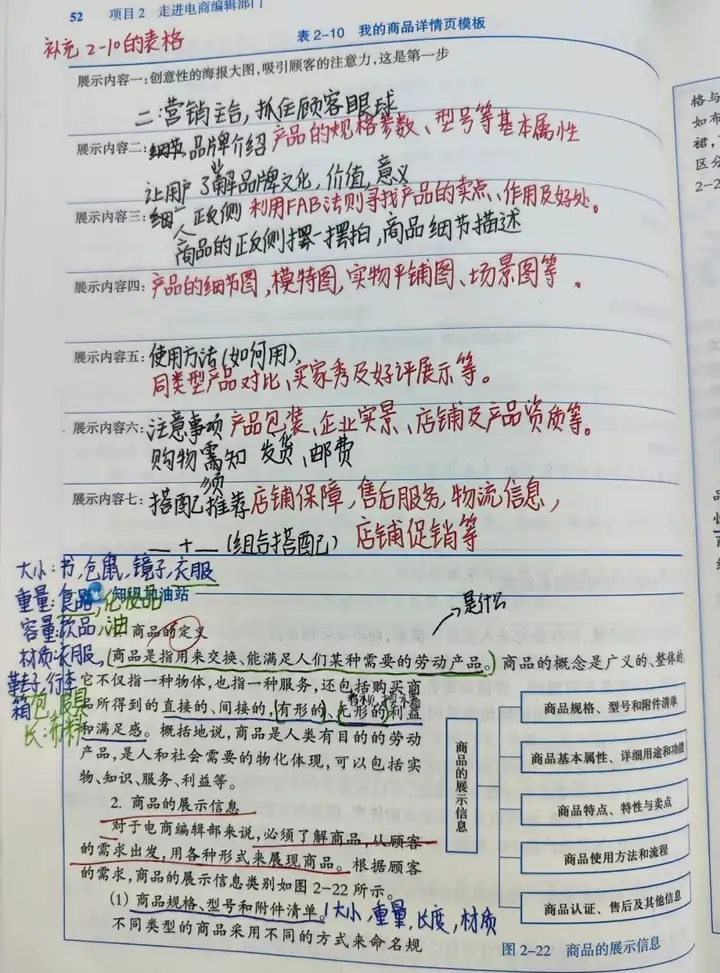 52 项目2 走进电商编辑部门
补充2-10的表格
表2-10 我的商品详情页模板
展示内容一:创意性的海报大图,吸引顾客的注意力,这是第一步
二:营销主台,抓住顾客眼球
展示内容二:细节品牌介绍 产品的规格参数、型号等基本属性
让用户了解品牌文化,价值,意义
展示内容三:细 正反侧 利用FAB法则寻找产品的卖点、作用及好处。
商品的正反侧摆一摆拍,商品细节描述
展示内容四:产品的细节图,模特图,实物平铺图、场景图等。
展示内容五:使用方法(如何用)、
同类型产品对比、买家秀及好评展示等。
展示内容六:注意事项 产品包装、企业实景、店铺及产品资质等。
购物需知 发货、邮费
须
展示内容七:搭配推荐 店铺保障,售后服务,物流信息,
__+__(组合搭配) 店铺促销等
大小:书,包,鼠,镜子,衣服
重量:食品 化妆品
知识加油站
容量:饮品,油
是什么
商品的定义
材质:衣服,
(商品是指用来交换、能满足人们某种需要的劳动产品。)商品的概念是广义的、整体的,
鞋子,行李
它不仅指一种物体,也指一种服务,还包括购买商
箱包
品所得到的直接的、间接的,(有形的、无形的)利益
长:布料
和满足感。概括地说,商品是人类有目的的劳动
产品,是人和社会需要的物化体现,可以包括实
物、知识、服务、利益等。
2. 商品的展示信息
对于电商编辑部来说,必须了解商品,从顾客
的需求出发,用各种形式来展现商品。根据顾客
的需求,商品的展示信息类别如图2-22所示。
(1)商品规格、型号和附件清单。(大小,重量,长度,材质
不同类型的商品采用不同的方式来命名规
商品的展示信息
商品规格、型号和附件清单
商品基本属性、详细用途和功能
商品特点、特性与卖点
商品使用方法和流程
商品认证、售后及其他信息
图2-22 商品的展示信息
格与
如布
裙,
区分
2-2